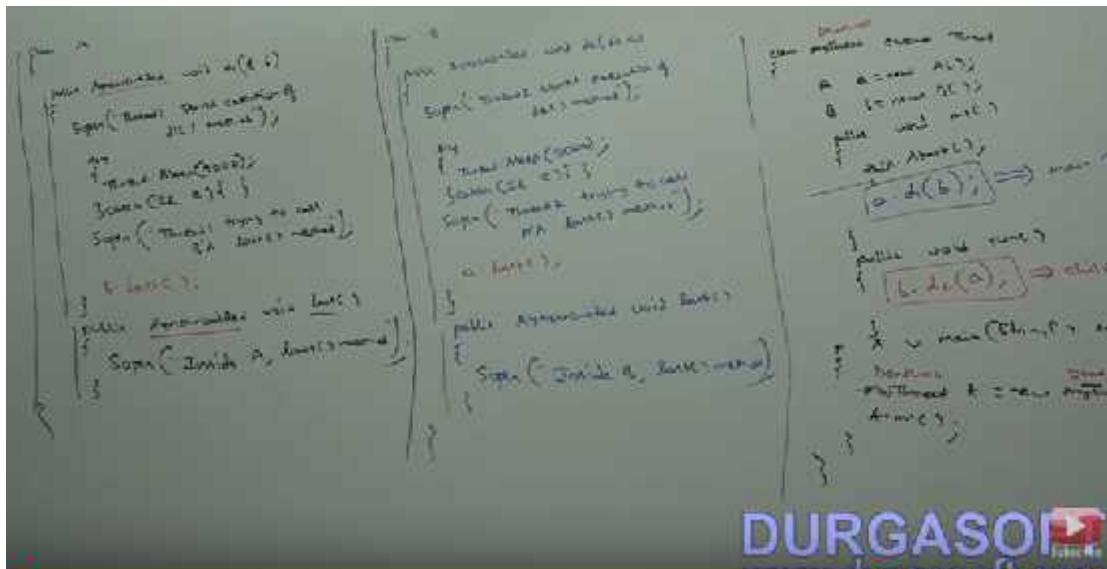 public synchronized void d1(B b)
{
Sopln("Thread1 starts execution of
d1() method");
try
{
Thread.sleep(5000);
}catch(IE e){ }
Sopln("Thread1 trying to call
B's last() method");
b.last();
}
public synchronized void last()
{
Sopln("Inside A, last() method");
}
}
public synchronized void d2(A a)
{
Sopln("Thread2 starts execution of
d2() method");
try
{
Thread.sleep(5000);
}catch(IE e){ }
Sopln("Thread2 trying to call
A's last() method");
a.last();
}
public synchronized void last()
{
Sopln("Inside B, last() method")
}
}
class extends Thread
{
A a = new A();
B b = new B();
public void m1()
{
this.start();
a.d1(b); ⇒ main
}
public void run()
{
b.d2(a); ⇒ child
}
main(String[]
{
t = new
t.m1();
}
}
DURGASOFT
Subscribe